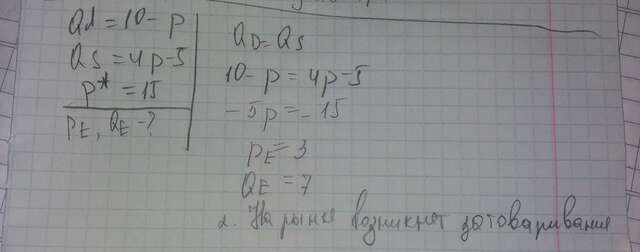 Qd = 10 - p
Qs = 4p-5
p* = 15
PE, QE - ?
QD = QS
10 - p = 4p-5
- 5p = - 15
PE = 3
QE = 7
2. На рынке возникнет затоваривание